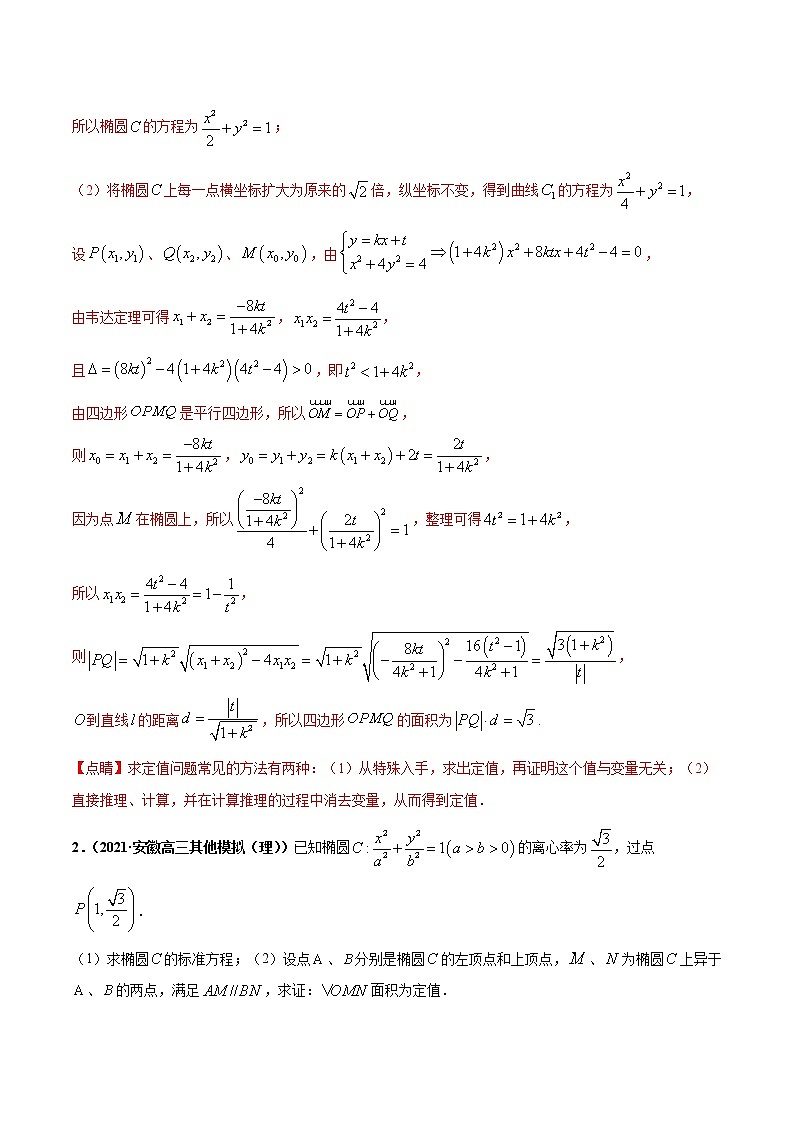 所以椭圆C的方程为 x²/2 + y² = 1；
（2）将椭圆C上每一点横坐标扩大为原来的 √2 倍，纵坐标不变，得到曲线C₁的方程为 x²/4 + y² = 1，
设 P(x₁,y₁)、Q(x₂,y₂)、M(x₀,y₀)，由 { y = kx+t ; x²+4y² = 4 ⇒ (1+4k²)x²+8ktx+4t²−4=0，
由韦达定理可得 x₁+x₂ = −8kt/(1+4k²)，x₁x₂ = (4t²−4)/(1+4k²)，
且 Δ = (8kt)²−4(1+4k²)(4t²−4)>0，即 t²<1+4k²，
由四边形OPMQ是平行四边形，所以 OM = OP + OQ，
则 x₀ = x₁+x₂ = −8kt/(1+4k²)，y₀ = y₁+y₂ = k(x₁+x₂)+2t = 2t/(1+4k²)，
因为点M在椭圆上，所以 (−8kt/(1+4k²))²/4 + (2t/(1+4k²))² = 1，整理可得 4t² = 1+4k²，
所以 x₁x₂ = (4t²−4)/(1+4k²) = 1−1/t²，
则 |PQ| = √(1+k²) √((x₁+x₂)²−4x₁x₂) = √(1+k²) √((−8kt/(4k²+1))²−16(t²−1)/(4k²+1)) = √(3(1+k²))/|t|，
O到直线l的距离 d = |t|/√(1+k²)，所以四边形OPMQ的面积为 |PQ|·d = √3．
【点睛】求定值问题常见的方法有两种：（1）从特殊入手，求出定值，再证明这个值与变量无关；（2）
直接推理、计算，并在计算推理的过程中消去变量，从而得到定值．
2．（2021·安徽高三其他模拟（理））已知椭圆C: x²/a² + y²/b² = 1(a>b>0)的离心率为 √3/2，过点
P(1, √3/2)．
（1）求椭圆C的标准方程；（2）设点A、B分别是椭圆C的左顶点和上顶点，M、N为椭圆C上异于
A、B的两点，满足 AM//BN，求证：\/OMN面积为定值．